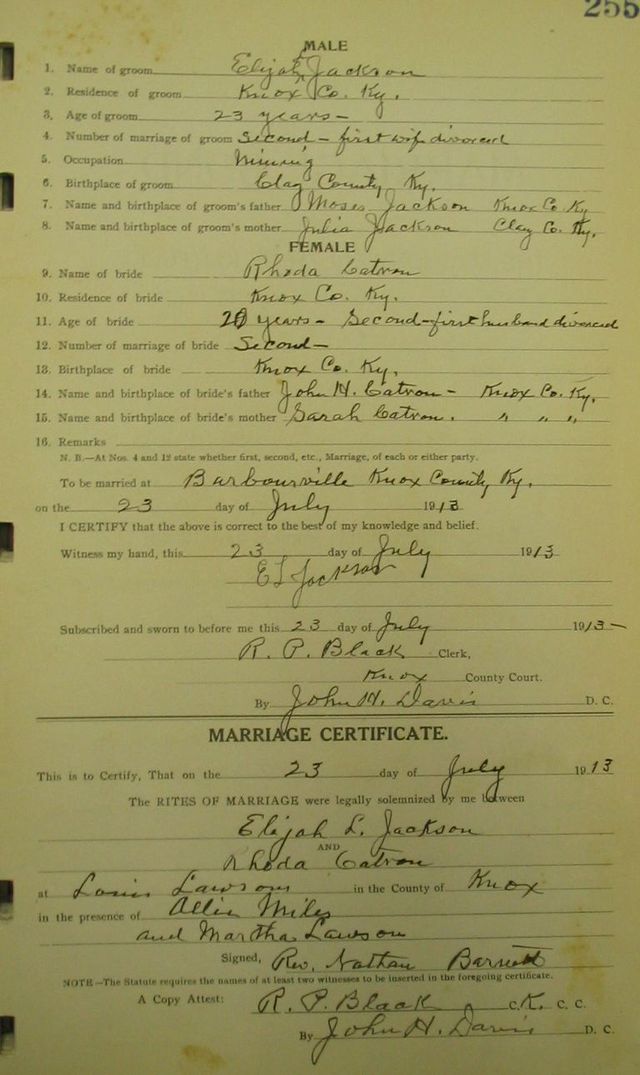 255
MALE
1. Name of groom Elijah L Jackson
2. Residence of groom Knox Co. Ky.
3. Age of groom 23 years -
4. Number of marriage of groom Second - first wife divorced
5. Occupation Mining
6. Birthplace of groom Clay County Ky.
7. Name and birthplace of groom's father Moses Jackson Knox Co. Ky
8. Name and birthplace of groom's mother Julia Jackson Clay Co. Ky.
FEMALE
9. Name of bride Rhoda Catron
10. Residence of bride Knox Co. Ky.
11. Age of bride 20 years - Second - first husband divorced
12. Number of marriage of bride Second -
13. Birthplace of bride Knox Co. Ky.
14. Name and birthplace of bride's father John H. Catron - Knox Co. Ky.
15. Name and birthplace of bride's mother Sarah Catron. " " "
16. Remarks
N. B.—At Nos. 4 and 12 state whether first, second, etc., Marriage, of each or either party.
To be married at Barbourville Knox County Ky.
on the 23 day of July 1913
I CERTIFY that the above is correct to the best of my knowledge and belief.
Witness my hand, this 23 day of July 1913
E L Jackson
Subscribed and sworn to before me this 23 day of July 1913 -
R. P. Black Clerk,
Knox County Court.
By John H. Davis D. C.
MARRIAGE CERTIFICATE.
This is to Certify, That on the 23 day of July 1913
The RITES OF MARRIAGE were legally solemnized by me between
Elijah L. Jackson
AND
Rhoda Catron
at Lawsons in the County of Knox
in the presence of Miles
and Martha Lawson
Signed, Rev. Nathan
NOTE—The Statute requires the names of at least two witnesses to be inserted in the foregoing certificate.
A Copy Attest: R. P. Black C.K. C. C.
By John H. Davis D. C.